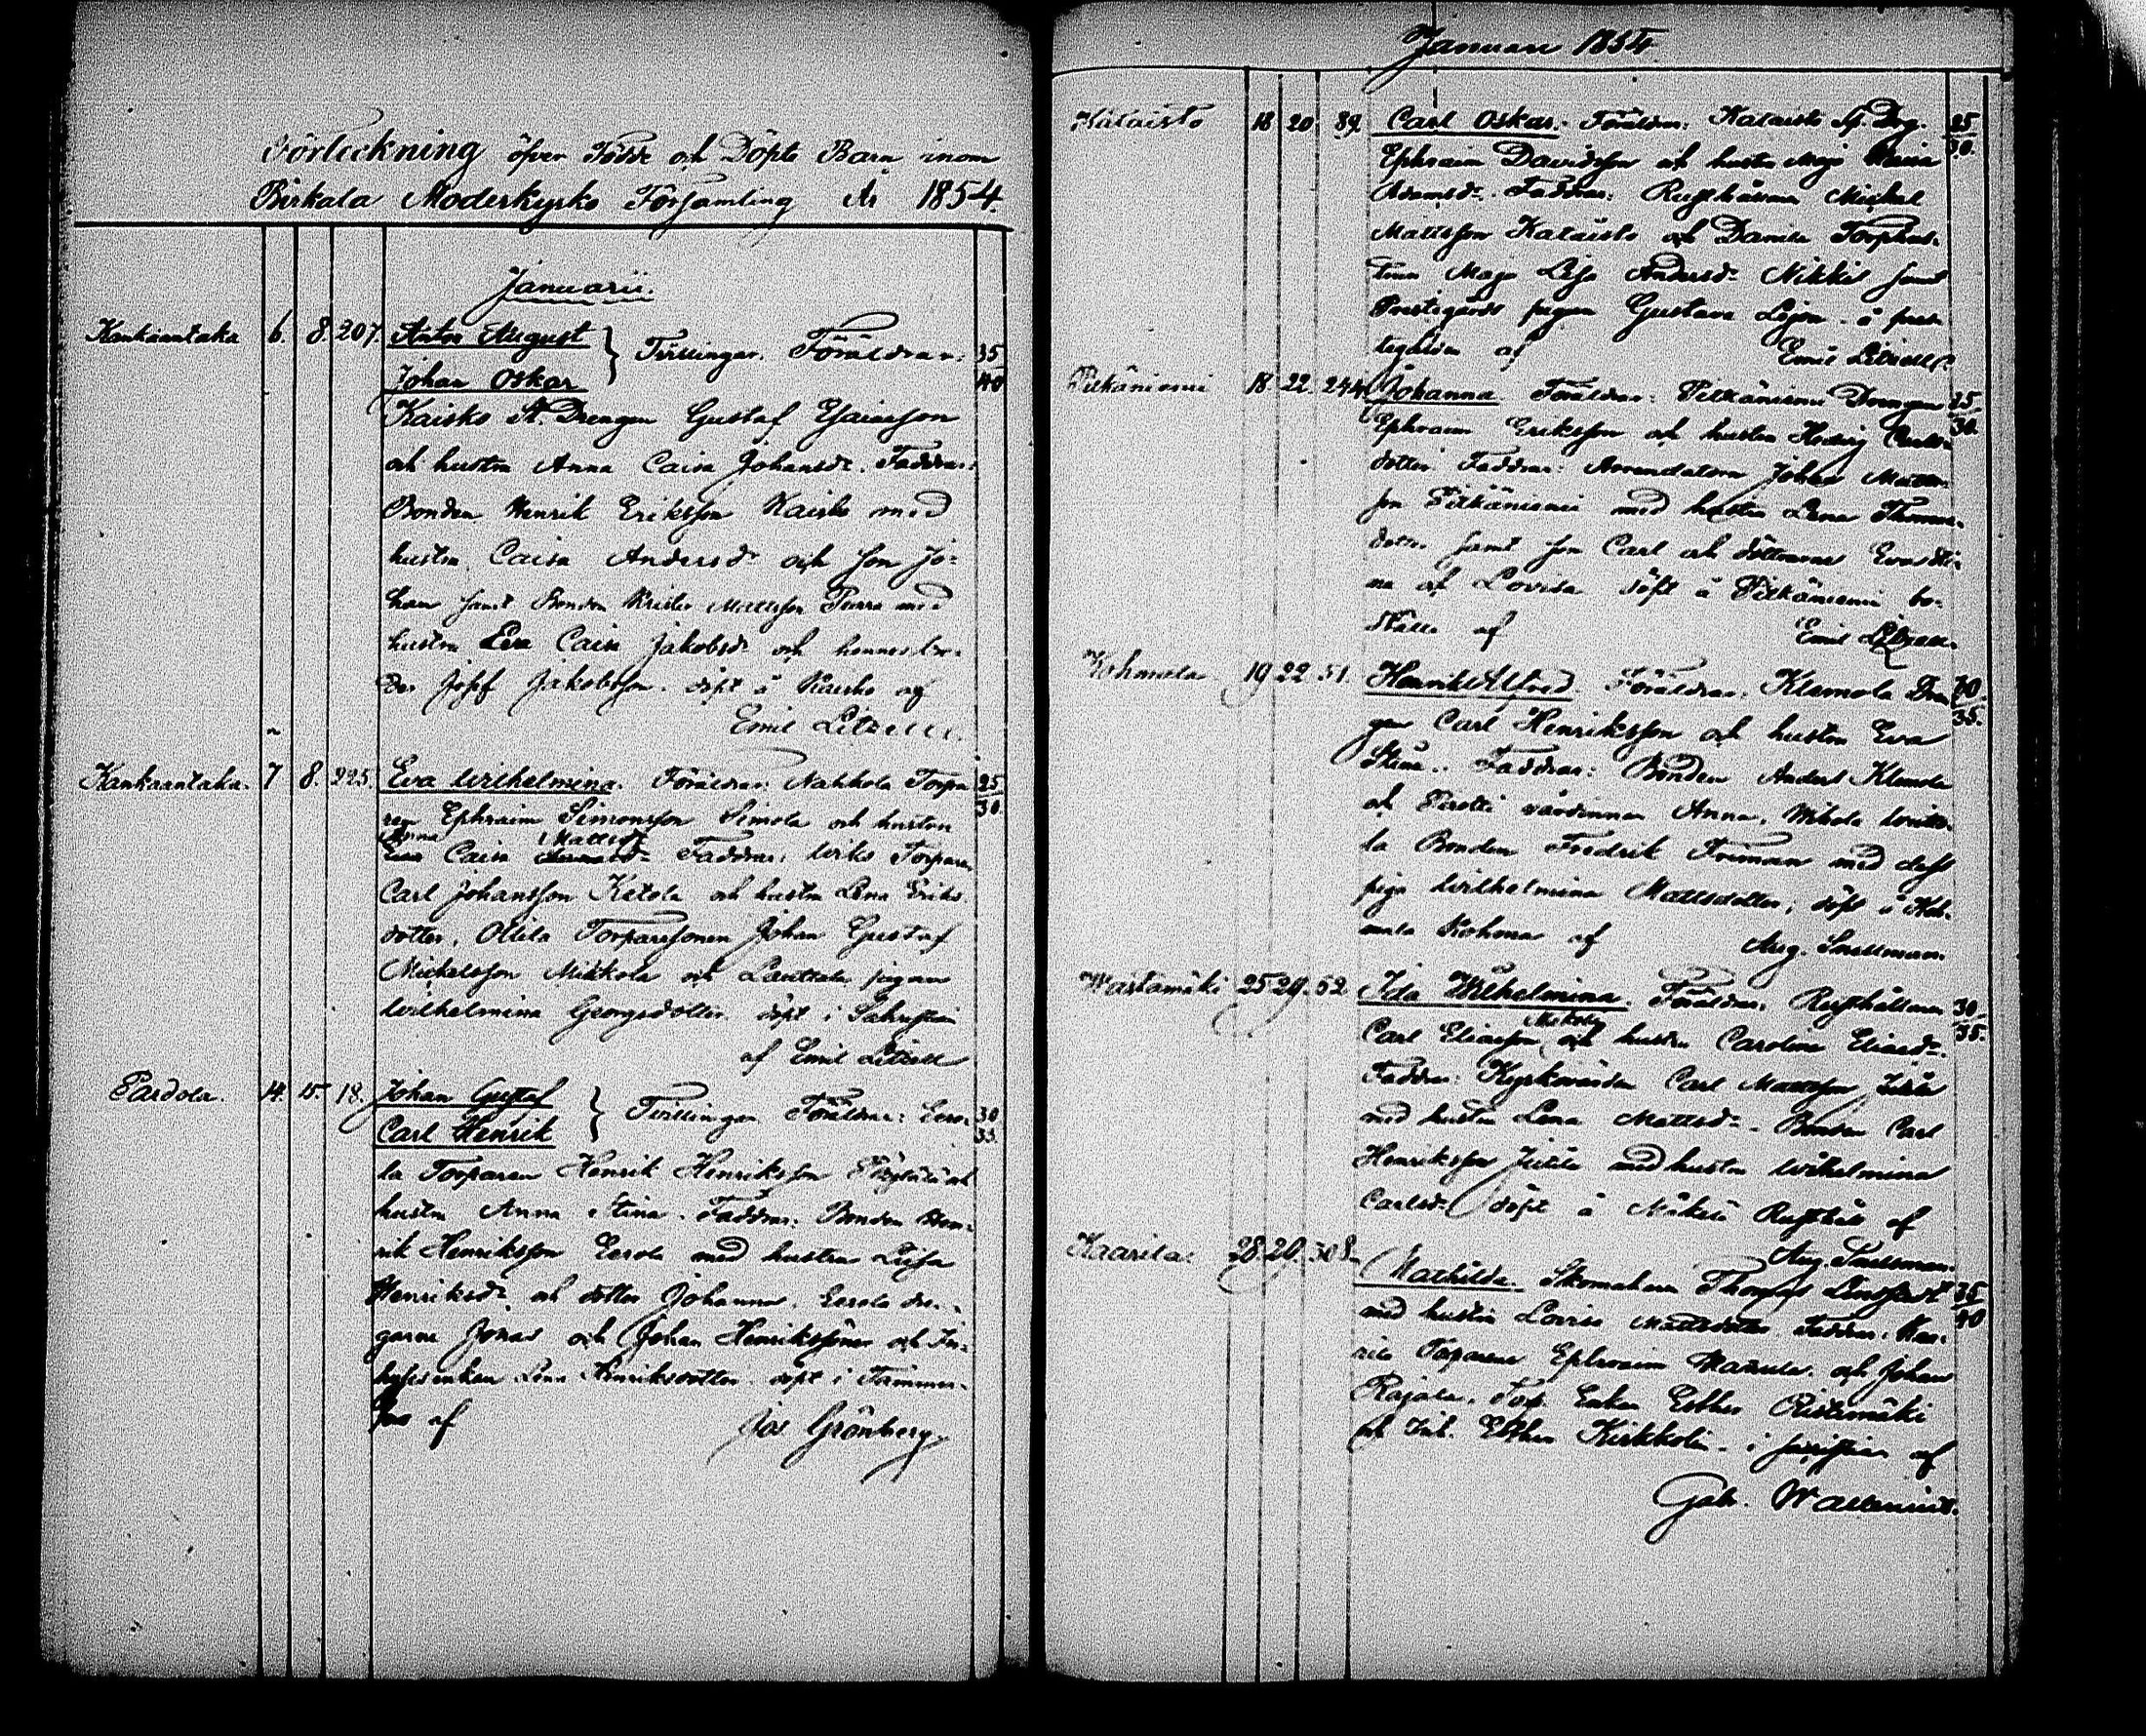 Förteckning öfver Födde och Döpte Barn inom
Birkala Moderkyrko Församling År 1854.
Januarii.
Kankaantaka 6. 8. 207. Anton August } Tvillingar. Föräldrar: 35
Johan Oskar 40
Kaisko St. Drengen Gustaf Esaiasson
och hustru Anna Caisa Johansdr. Faddrar:
Bonden Henrik Eriksson Kaisko med
hustru Caisa Andersdr och son Jo-
han samt Bonden Krister Mattsson Purra med
hustru Eva Caisa Jakobsdr och hennes bro-
der Josef Jakobsson. döpt å Kaisko af
Emil Litzelle.
Kankaantaka. 7 8. 225. Eva Wilhelmina. Föräldrar: Nahkola Torpa- 25
ren Ephraim Simonsson Simola och hustru 30.
Anna Mattsdr
Caisa Faddrar: Wiks Torparen
Carl Johansson Ketola och hustru Lena Eriks-
dotter, Ollila Torparesonen Johan Gustaf
Michelsson Mikkola och Lauttala pigan
Wilhelmina Georgsdotter döpt i Sakristian
af Emil Litzelle
Pardola. 14. 15. 18. Johan Gustaf } Tvillingar Föräldrar: Eero- 30
Carl Henrik 35.
la Torparen Henrik Henriksson och
hustru Anna Stina. Faddrar: Bonden Hen-
rik Henriksson Eerola med hustru Lisa
Henriksdr och dotter Johanna, Eerola dren-
garne Jonas och Johan Henrikssöner och In-
hysesenkan Lena Henriksdotter. döpt i Tammer-
fors af Jos Grönberg
Januari 1854.
Kalaisto 18 20 89. Carl Oskar. Föräldrar: Kalaisto St. Drg. 25
Ephraim Davidsson och hustru Maja Caisa 30.
Adamsdr. Faddrar: Rusthållaren Michel
Mattsson Kalaisto och Danila Torphus-
trun Maja Lisa Andersdr Nikkilä samt
Prestgårds pigan Gustava Lejon. å pres-
tegården af Emil Litzelle.
Pitkäniemi 18. 22. 244. Johanna. Föräldrar: Pitkäniemi Drengen 25
Ephraim Eriksson och hustru Hedvig Carls- 30.
dotter Faddrar: Arrendatorn Johan Matts-
son Pitkäniemi med hustru Lena Thomas-
dotter samt son Carl och döttrarna Eva Sti-
na och Lovisa döpt å Pitkäniemi bo-
ställe af Emil Litzelle.
Kohmala 19 22 51. Henrik Alfred. Föräldrar. Klemola Dren- 30
gen Carl Henriksson och hustru Eva 35.
Stina.. Faddrar: Bonden Anders Klemola
och Pirotti värdinnan Anna, Mikola
la Bonden Fredrik Friman med dess
piga Wilhelmina Mattsdotter; döpt å Koh-
mala af Aug. Snellman.
Wastamäki 25 29. 52 Ida Wilhelmina. Föräldrar: Rusthållaren 30
Carl Eliasson och hustru Carolina Eliasdr. 35.
Faddrar: Kyrkovärden Carl Mattsson
med hustru Lena Mattsdr. Bonden Carl
Henriksson Jutila med hustru Wilhelmina
Carlsdr döpt å Mäkelä Rusthåll af
Aug. Snellman.
Kaarila. 28. 29. 308. Mathilda. Skomakaren Thomas Lindqvist 35
med hustru Lovisa Mattsdotter. Faddrar: Kaa- 40
rila Torparen Ephraim och Johan
Rajala. Torp Enkan Esther Ristimäki
och Inh. Esther Kirkkolin. i sacristian af
Gab. Wallenius.